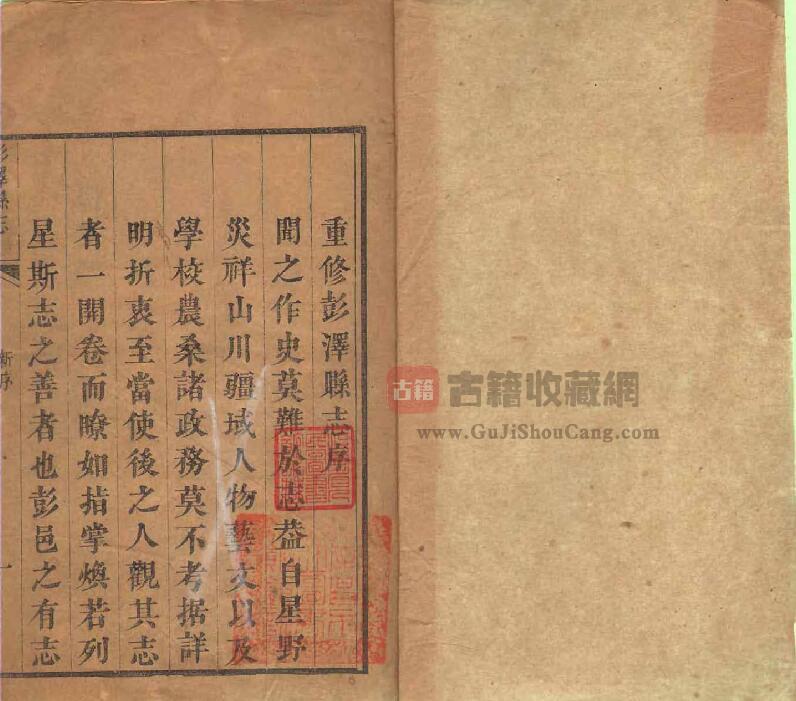 重修彭澤縣志序
聞之作史莫難於志葢自星野
災祥山川疆域人物藝文以及
學校農桑諸政務莫不考据詳
明折衷至當使後之人觀其志
者一開卷而瞭如指掌煥若列
星斯志之善者也彭邑之有志
彭澤縣志
新序
一
古籍 古籍收藏網
www.GuJiShouCang.com